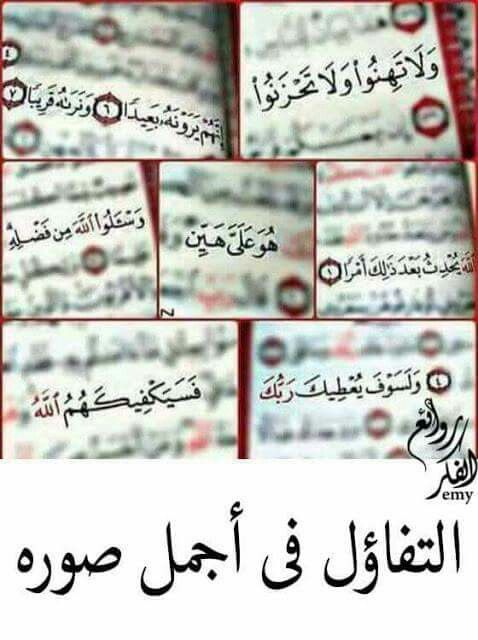 وَلَا تَهِنُوا۟ وَلَا تَحْزَنُوا۟
إِنَّهُمْ يَرَوْنَهُۥ بَعِيدًا ٦ وَنَرَىٰهُ قَرِيبًا ٧
ٱللَّهَ يُحْدِثُ بَعْدَ ذَٰلِكَ أَمْرًا ١
هُوَ عَلَىَّ هَيِّنٌ
وَسْـَٔلُوا۟ ٱللَّهَ مِن فَضْلِهِۦٓ
٤ وَلَسَوْفَ يُعْطِيكَ رَبُّكَ
فَسَيَكْفِيكَهُمُ ٱللَّهُ
روائع
الفكر
emy
التفاؤل فى أجمل صوره